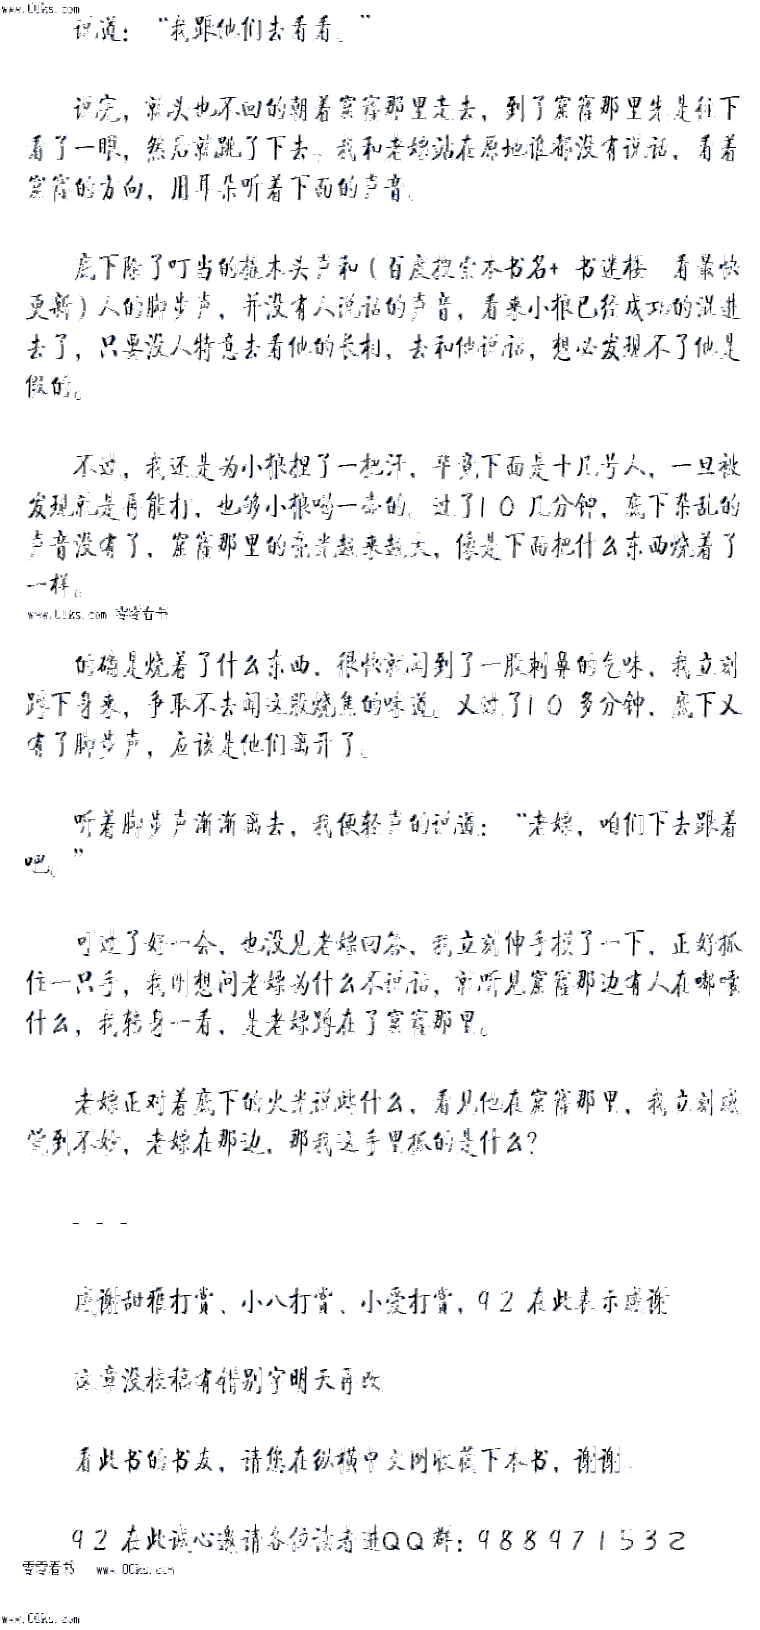 www.00ks.com
说道：“我跟他们去看看。”
说完，就头也不回的朝着窟窿那里走去，到了窟窿那里先是往下
看了一眼，然后就跳了下去。我和老嫖站在原地谁都没有说话，看着
窟窿的方向，用耳朵听着下面的声音。
底下除了叮当的撬木头声和（百度搜索本书名+ 书迷楼 看最快
更新）人的脚步声，并没有人说话的声音，看来小狼已经成功的混进
去了，只要没人特意去看他的长相，去和他说话，想必发现不了他是
假的。
不过，我还是为小狼捏了一把汗，毕竟下面是十几号人，一旦被
发现就是再能打，也够小狼喝一壶的。过了10几分钟，底下杂乱的
声音没有了，窟窿那里的亮光越来越大，像是下面把什么东西烧着了
一样。
www.00ks.com 零零看书
的确是烧着了什么东西，很快就闻到了一股刺鼻的气味，我立刻
蹲下身来，争取不去闻这股烧焦的味道。又过了10多分钟，底下又
有了脚步声，应该是他们离开了。
听着脚步声渐渐离去，我便轻声的说道：“老嫖，咱们下去跟着
吧。”
可过了好一会，也没见老嫖回答，我立刻伸手摸了一下，正好抓
住一只手，我刚想问老嫖为什么不说话，就听见窟窿那边有人在嘟囔
什么，我转身一看，是老嫖蹲在了窟窿那里。
老嫖正对着底下的火光说些什么，看见他在窟窿那里，我立刻感
觉到不妙，老嫖在那边，那我这手里抓的是什么？
- - -
感谢甜雅打赏、小八打赏、小爱打赏，92在此表示感谢
这章没校稿有错别字明天再改
看此书的书友，请您在纵横中文网收藏下本书，谢谢。
92在此诚心邀请各位读者进QQ群：988971532
零零看书 www.00ks.com
www.00ks.com